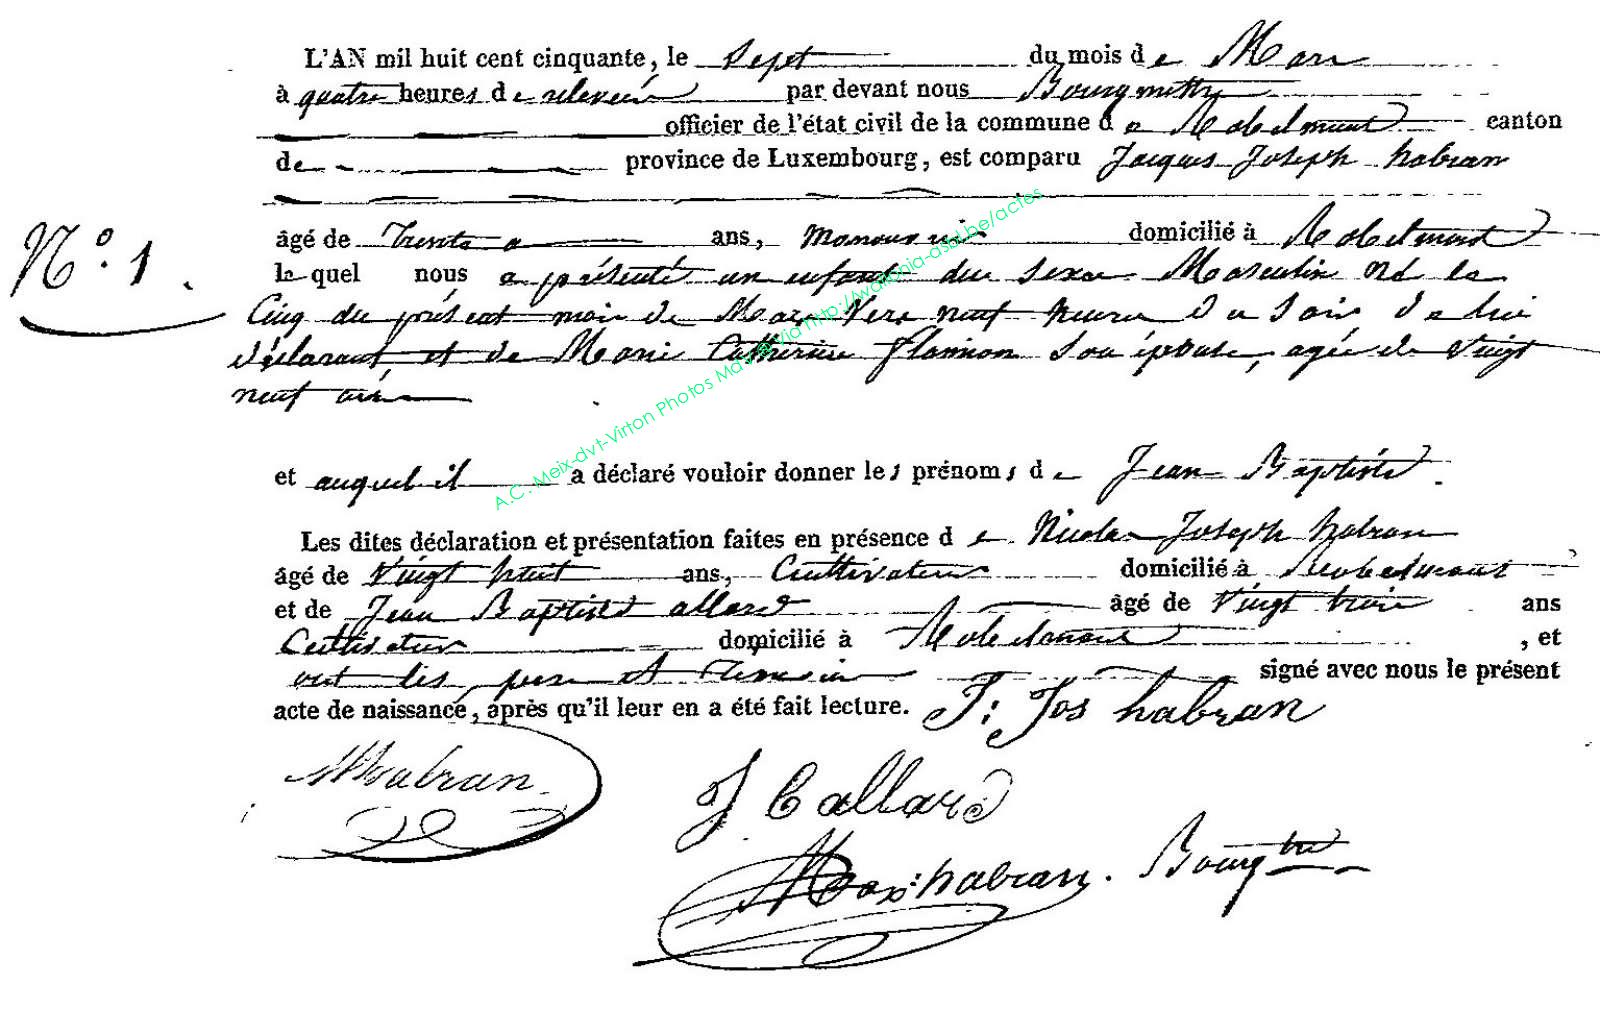 L'AN mil huit cent cinquante, le Sept du mois de Mars
à quatre heures de relevée par devant nous Bourgmettre
officier de l'état civil de la commune de Robelmont canton
de province de Luxembourg, est comparu Jacques Joseph habran
âgé de Trente ans, Manouvrier domicilié à Robelmont
N.° 1.
le quel nous a présenté un enfant du sexe Masculin Né le
Cinq du présent mois de Mars Vers neuf heures du Soir de lui
déclarant, et de Marie Catherine flamion Son épouse, agée de Vingt
neuf ans
et auquel il a déclaré vouloir donner les prénoms de Jean Baptiste
Les dites déclaration et présentation faites en présence de Nicolas Joseph habran
âgé de Vingt huit ans, Cultivateur domicilié à Robelmont
et de Jean Baptiste allard âgé de Vingt trois ans
Cultivateur domicilié à Robelmont , et
ont les pere et Temoins signé avec nous le présent
acte de naissance, après qu'il leur en a été fait lecture. J: Jos habran
NHabran
J B allard
habran. Bourgtre
A.C. Meix-dvt-Virton Photos MdV@ Via http://wallonia-asbl.be/actes